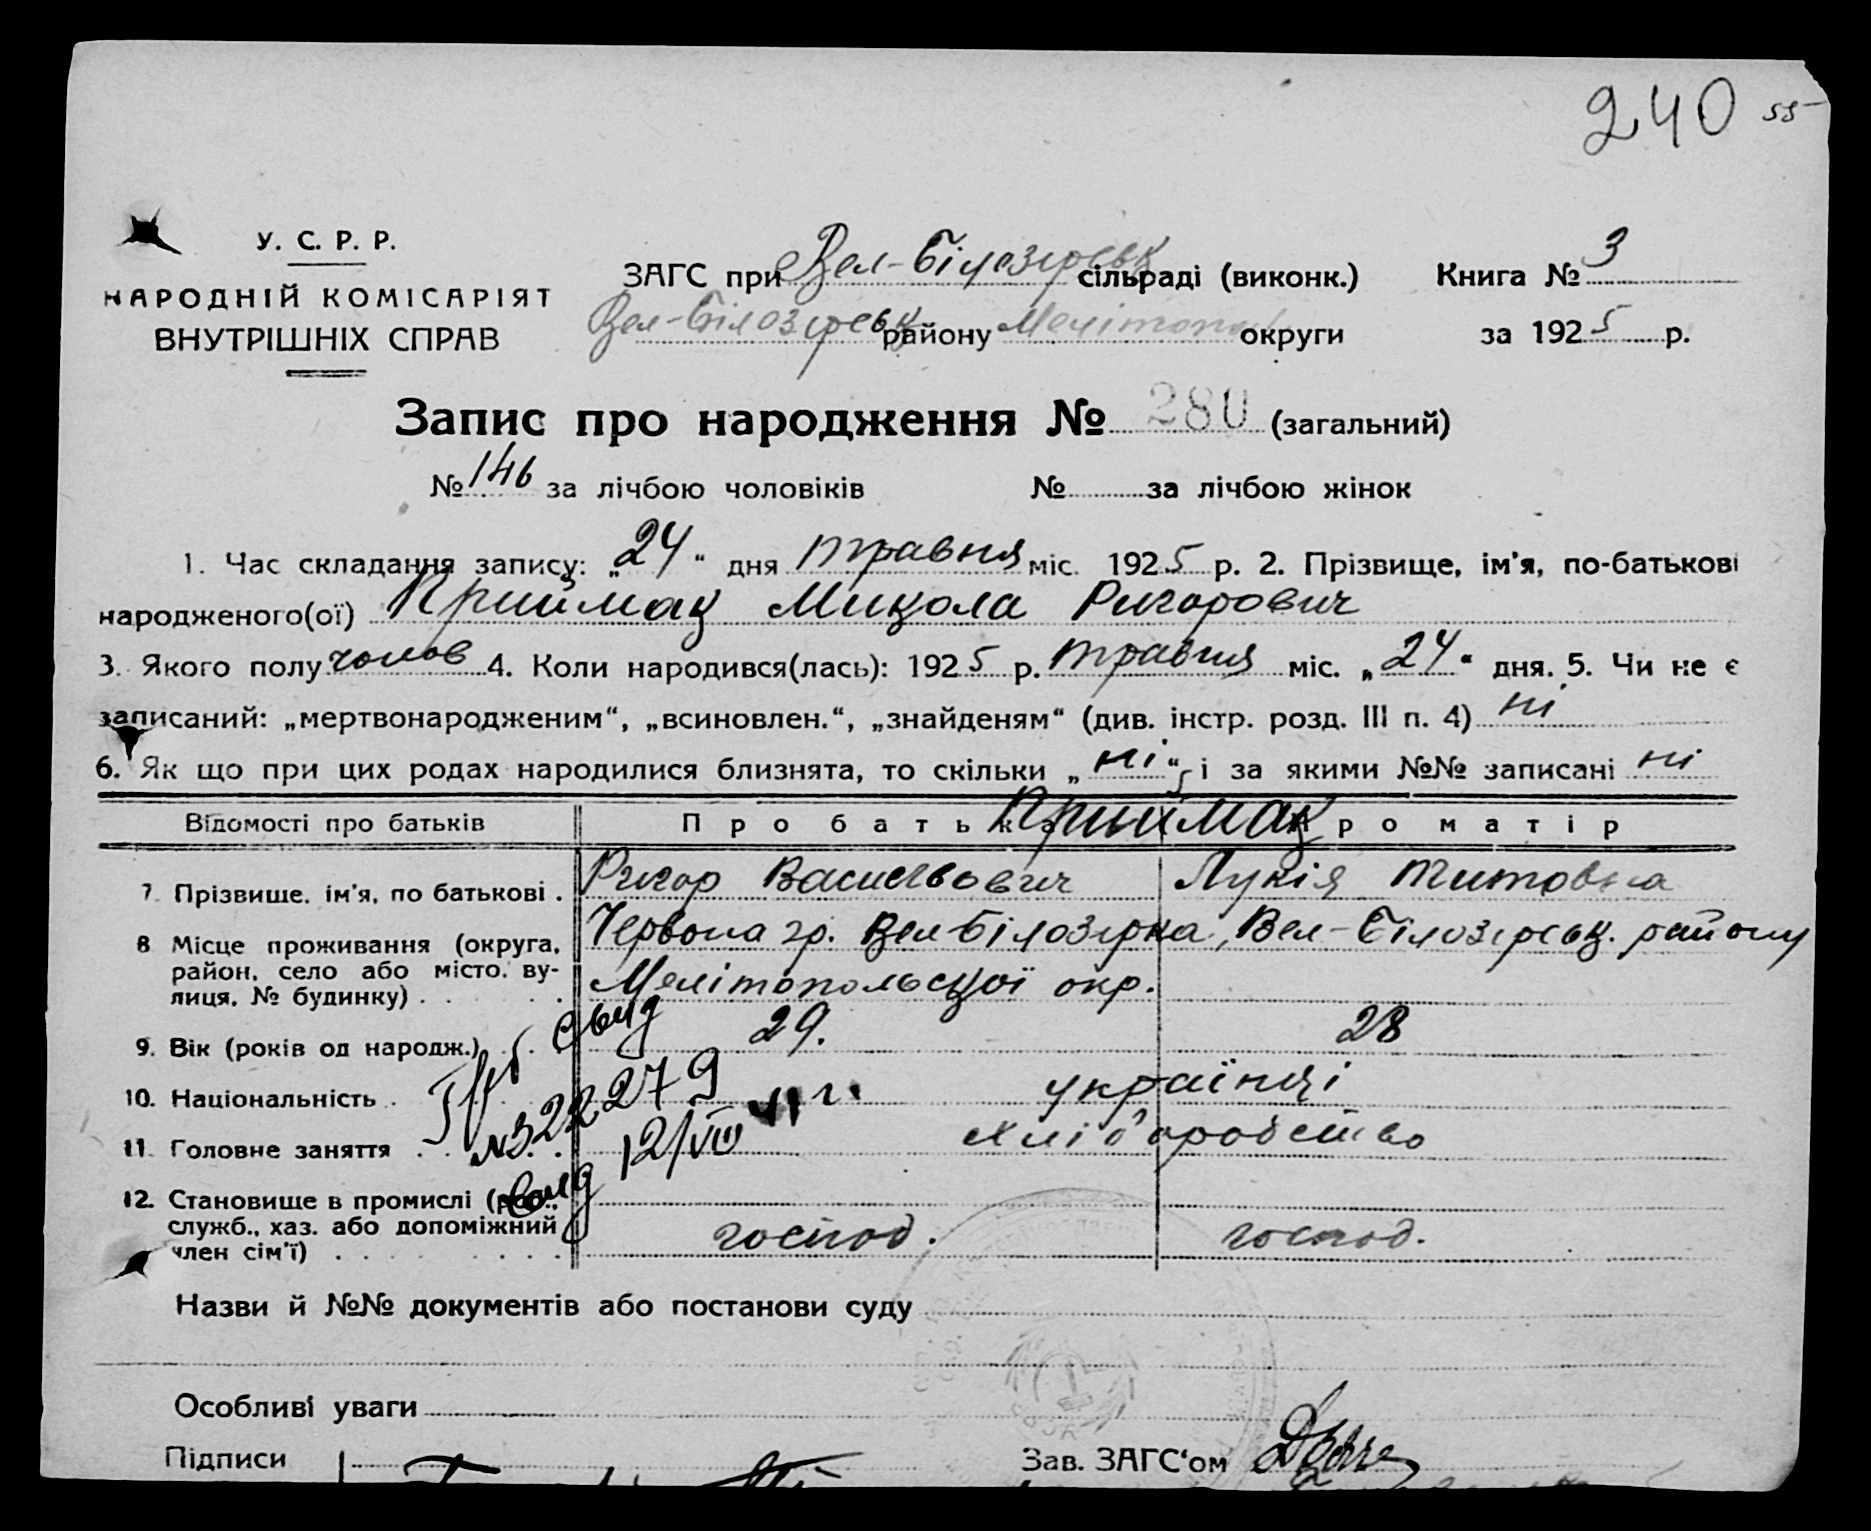 240 55
У. С. Р. Р.
НАРОДНІЙ КОМІСАРІЯТ
ВНУТРІШНІХ СПРАВ
ЗАГС при Вел-Білозірськ сільраді (виконк.) Книга № 3
Вел-Білозірськ району Мелітопол округи за 1925 р.
Запис про народження № 280 (загальний)
№ 146 за лічбою чоловіків № за лічбою жінок
1. Час складання запису: „24“ дня травня міс. 1925 р. 2. Прізвище, ім'я, по-батькові
народженого(ої) Приймак Микола Ригорович
3. Якого полу чолов 4. Коли народився(лась): 1925 р. травня міс. „24“ дня. 5. Чи не є
записаний: „мертвонародженим“, „всиновлен.“, „знайденям“ (див. інстр. розд. III п. 4) ні
6. Як що при цих родах народилися близнята, то скільки „ні“ і за якими №№ записані ні
Відомості про батьків Про батька Про матір
Приймак
7. Прізвище, ім'я, по батькові . Ригор Васильович Лукія Титовна
8 Місце проживання (округа, район, село або місто, вулиця, № будинку) . . . Червона гр. Вел-Білозірка, Вел-Білозірськ. району
Мелітопольської окр.
9. Вік (років од народж.) . . 29. 28
10. Національність . українці
11. Головне заняття . . хліборобство
№ 322279
12/VIII
12. Становище в промислі (роб., служб., хаз. або допоміжний член сім'ї) . . . господ. господ.
Назви й №№ документів або постанови суду
Особливі уваги
Підписи Зав. ЗАГС'ом